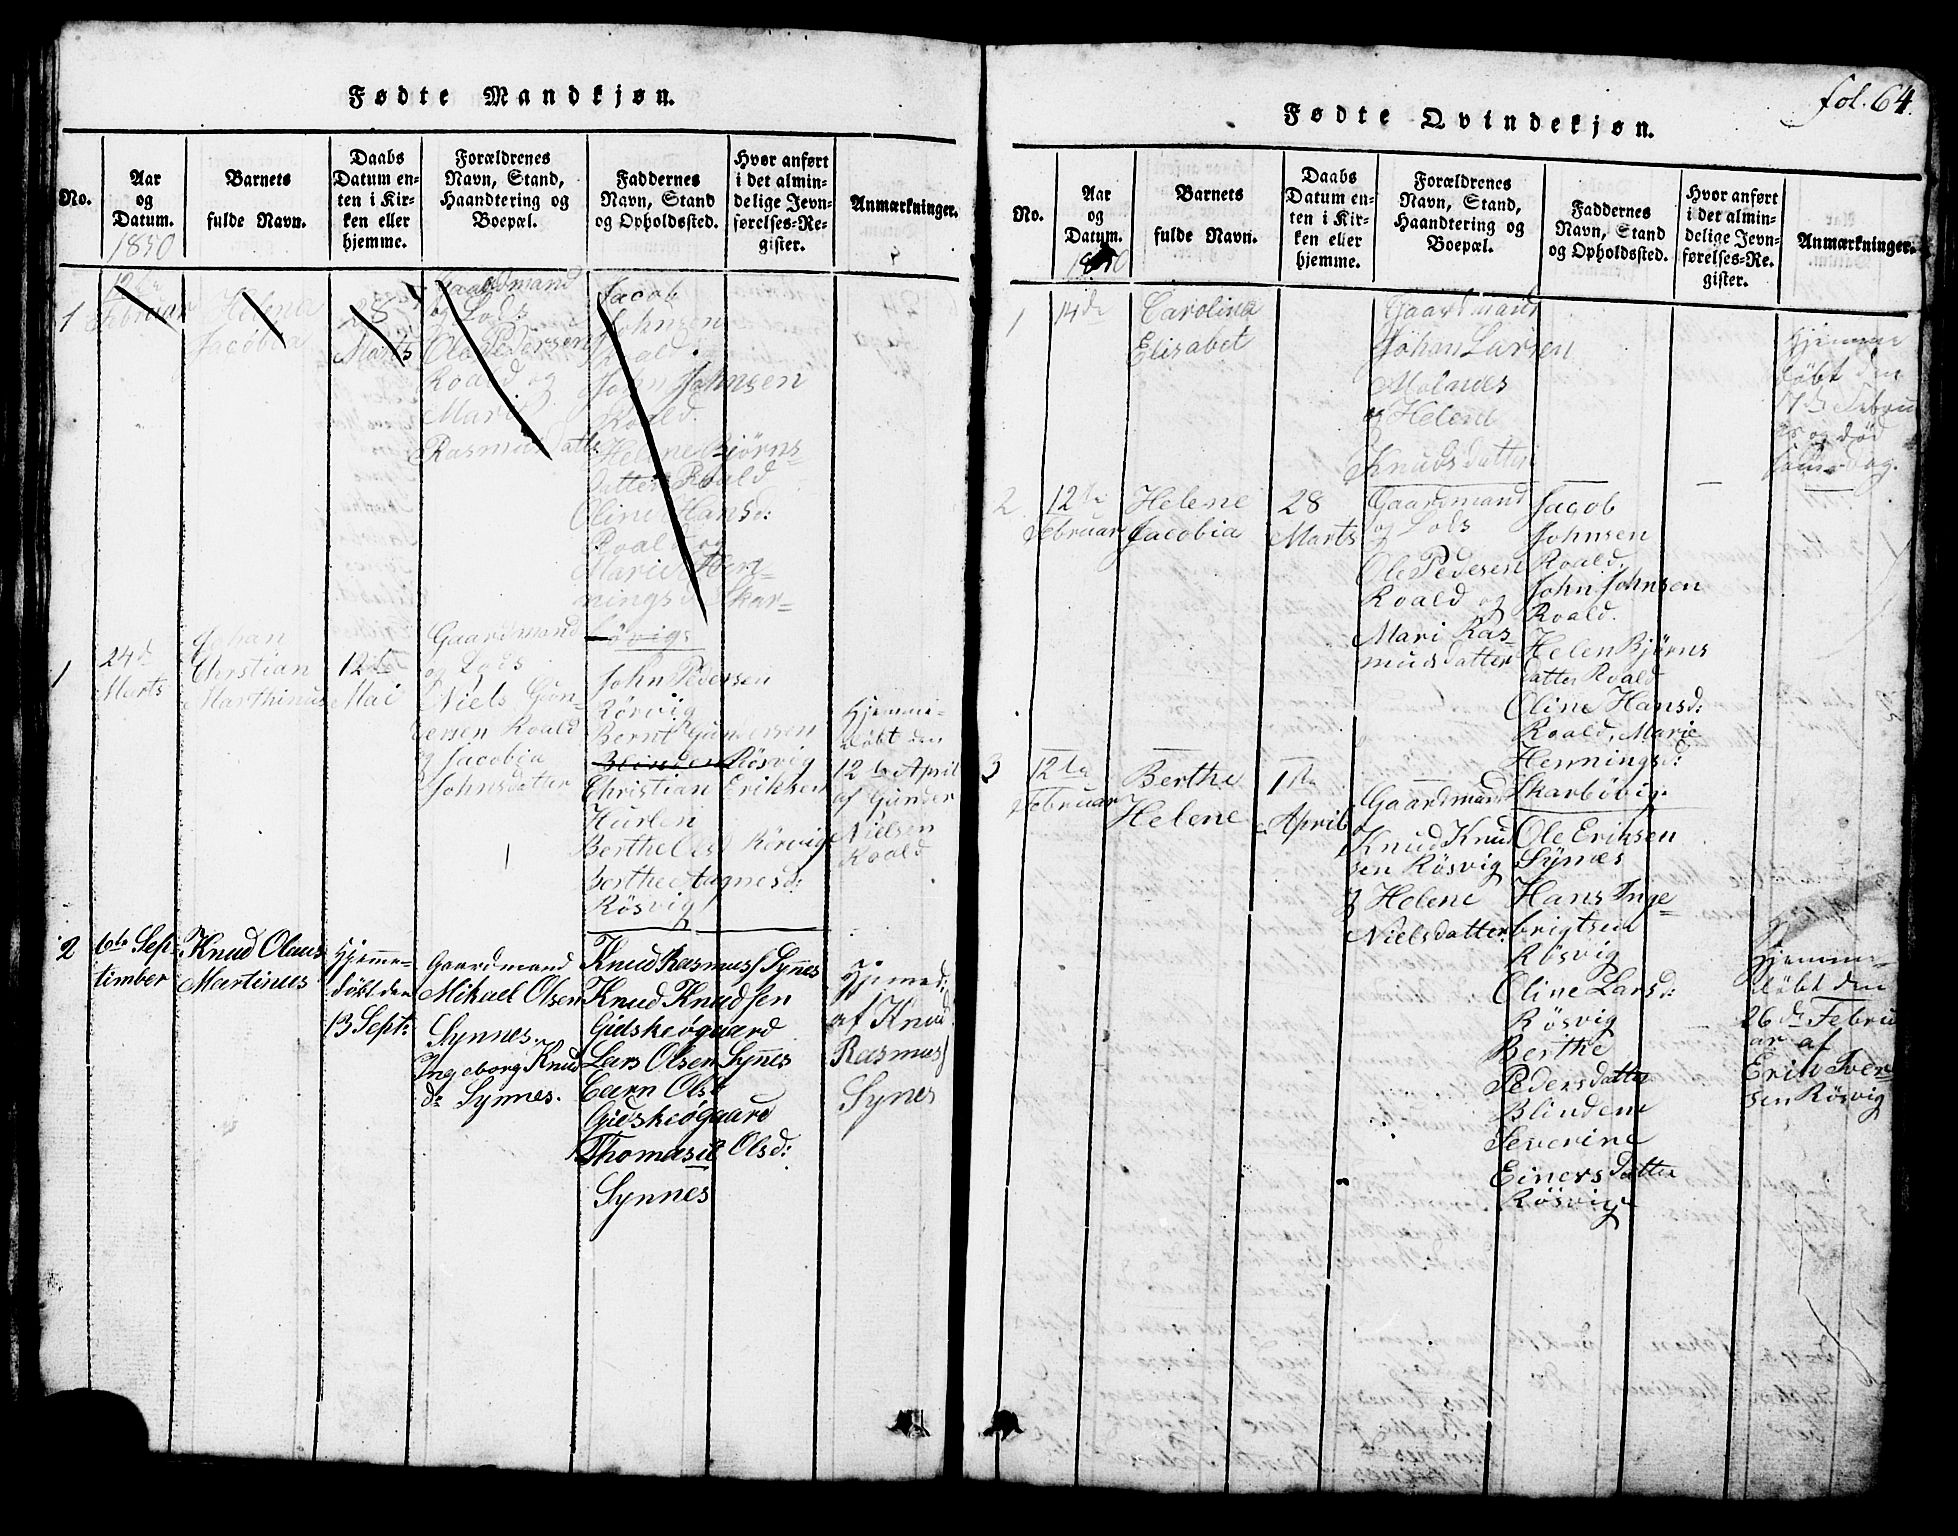 Fødte Mandkjøn.
No.
Aar
og
Datum.
1850
Barnets
fulde Navn.
Daabs
Datum en-
ten i Kir-
ken eller
hjemme.
Forældrenes
Navn, Stand,
Haandtering og
Boepæl.
Faddernes
Navn, Stand
og Opholdssted.
Hvor anført
i det almin-
delige Jevn-
førelses-Re-
gister.
Anmærkninger.
1
12te
Februar
Helena
Jacobia
28
Marts
Gaardmand
og Lods
Ole Pedersen
Roald og
Mari
Rasmusdatter
Jacob
Johnsen
Roald
John Johnsen
Roald.
Helene Bjørns-
datter Roald
Oline Hansd:
Roald og
Marie Hen-
ningsd: Skar-
bövig
1
24de
Marts
Johan
Christian
Marthinus
12te
Mai
Gaardmand
og Lods
Niels Gun-
dersen Roald
og Jacobia
Johnsdatter
John Pedersen
Rörvig
Bernt Gundersen
Blinden Rösvig
Christian Eriksen
Hurlen
Berthe Olsd Rörvig
Berthe Aagnesd:
Rösvig
Hjemme-
döbt den
12te April
af Gunder
Nielsen
Roald
2
6te Sep-
timber
Knud Olaus
Martinus
Hjemme-
döbt den
13 Sept:
Gaardmand
Mikael Olsen
Synnes.
Ingeborg Knud
dr Synnes.
Knud Rasmuss Synnes
Knud Knudsen
Gidskeögaard
Lars Olsen Synnes
Carn Olsd
Gidskeögaard
Thomasie Olsd:
Synnes
Hjemmed:
af Knud
Rasmuss
Synes
fol. 64.
Fødte Qvindekjøn.
No.
Aar
og
Datum.
1850
Barnets
fulde Navn.
Daabs
Datum en-
ten i Kir-
ken eller
hjemme.
Forældrenes
Navn, Stand,
Haandtering og
Boepæl.
Faddernes
Navn, Stand
og Opholdssted.
Hvor anført
i det almin-
delige Jevn-
førelses-Re-
gister.
Anmærkninger.
1
14de
Carolina
Elisabet
Gaardmand
Johan Larsen
Molnæs
og Helene
Knudsdatter
Hjemme
döbt den
17de Febru
ar og död
samedag.
2
12te
Februar
Helene
Jacobia
28
Marts
Gaardmand
og Lods
Ole Pedesen
Roald og
Mari Ras-
musdatter
Jacob
Johnsen
Roald.
John Johnsen
Roald.
Helen Bjørns
datter Roald
Oline Hansd:
Roald, Marie
Henningsd:
Skarbövig.
3
12te
Februar
Berthe
Helene
1ste
April
Gaardmand
Knud Knud
sen Rösvig
og Helene
Nielsdatter.
Ole Eriksen
Synnes
Hans Inge-
brigtsen
Rösvig
Oline Larsd:
Rösvig
Berthe
Pedersdatter
Blindem
Severine
Einersdatter
Rösvig
Hjemme-
döbt den
26de Febru
ar af
Erik Iver-
sen Rösvig